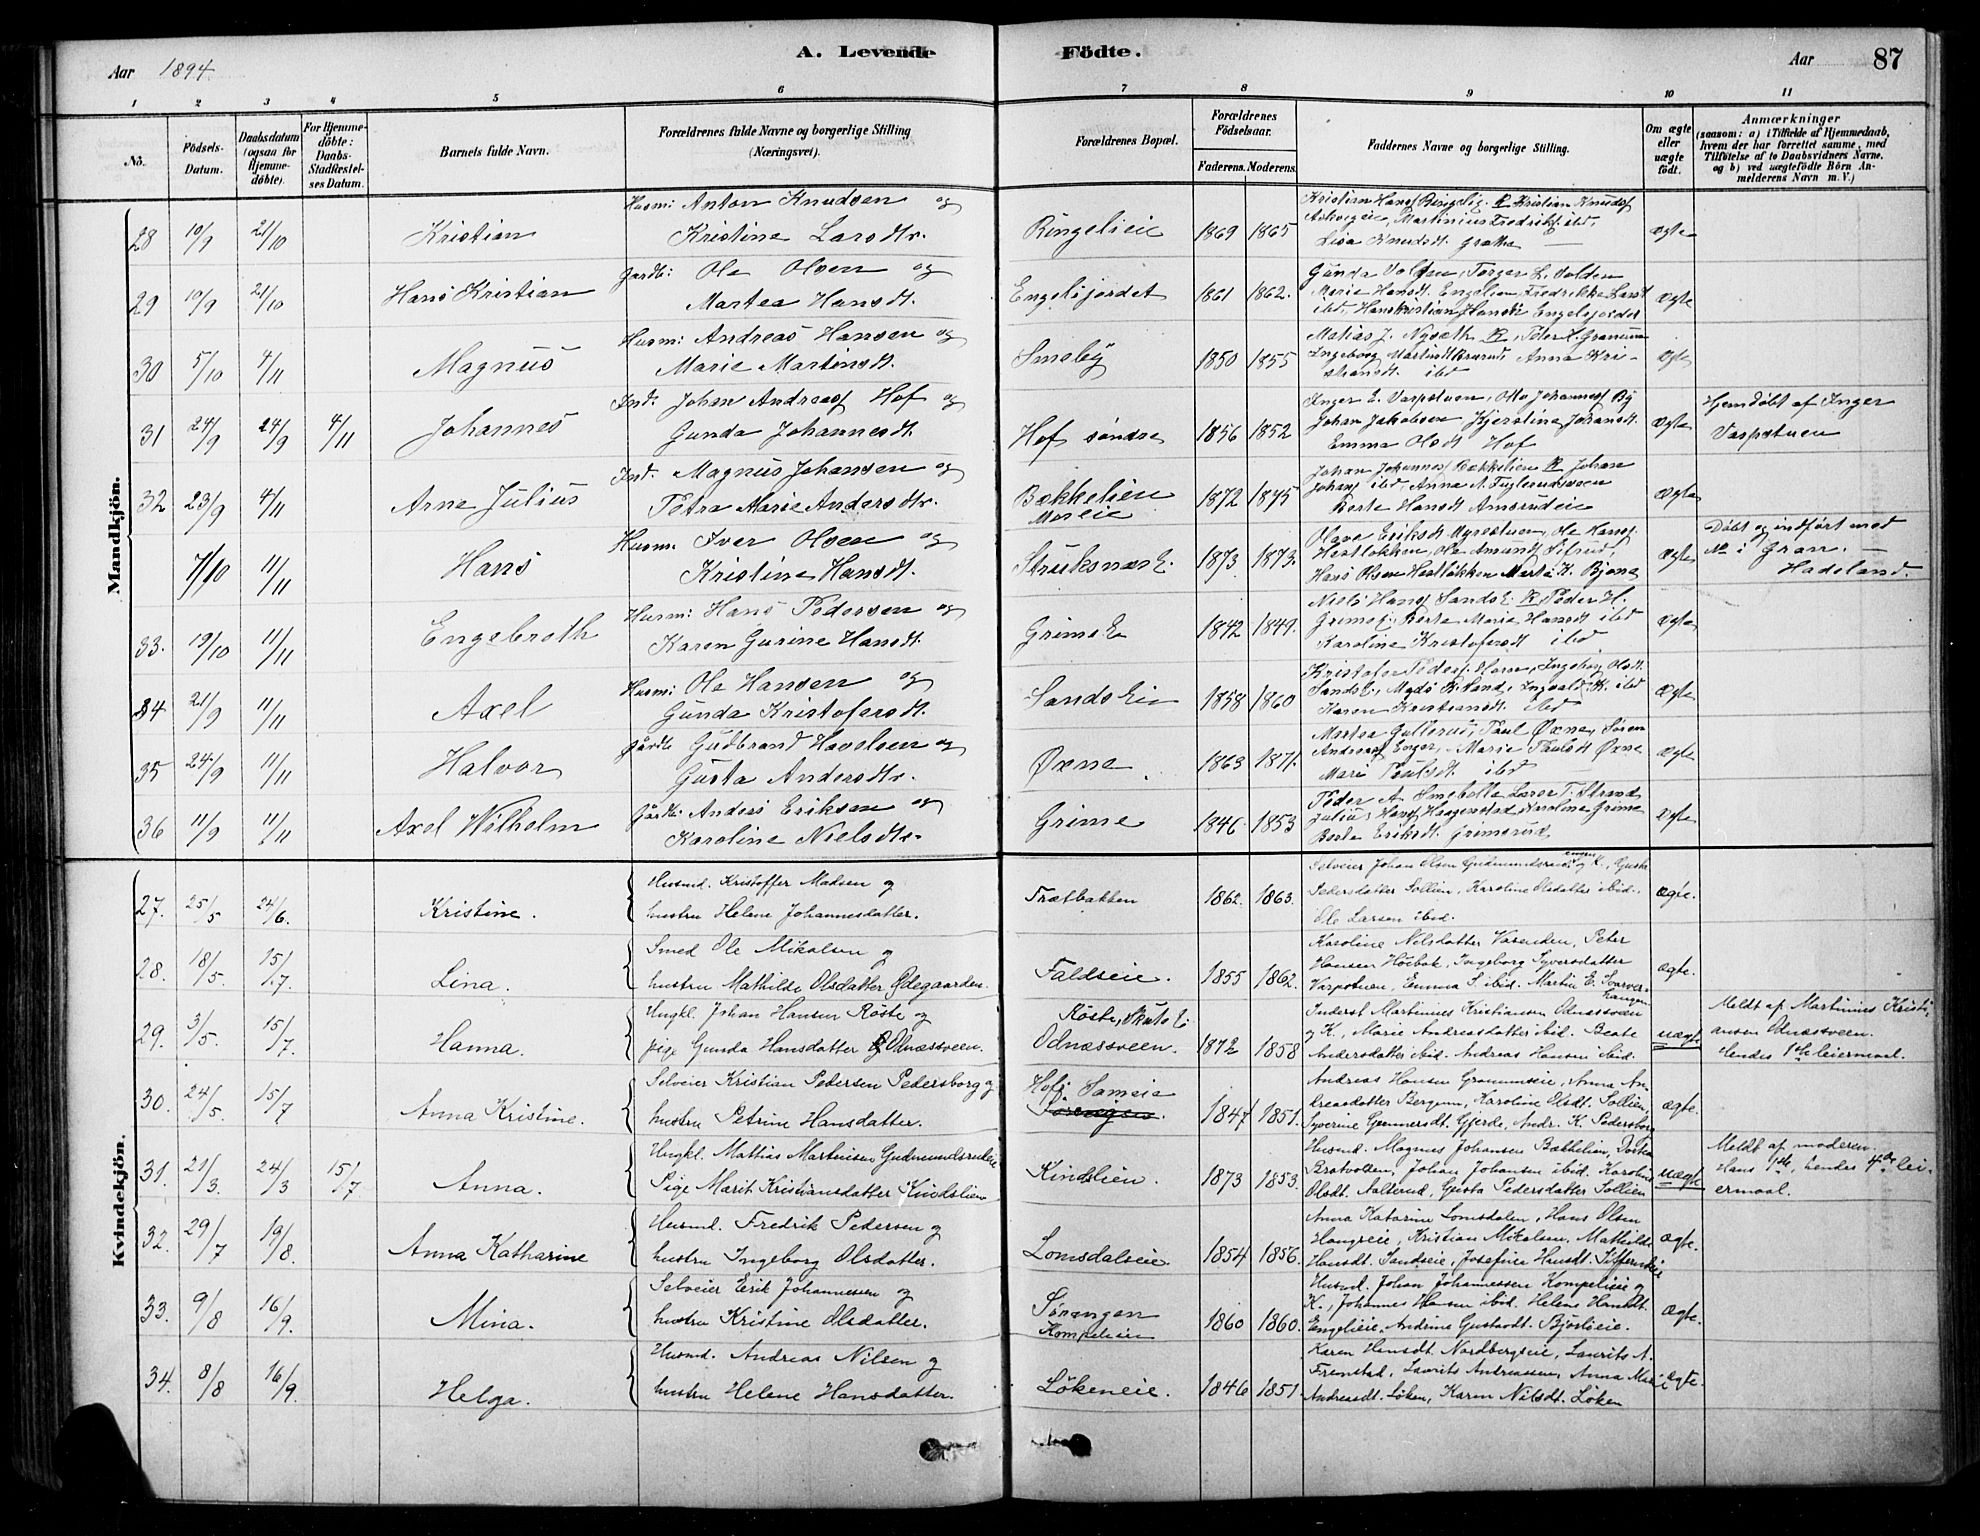 Aar 1894. A. Levende Födte. Aar 87
1 2 3 4 5 6 7 8 9 10 11
No. Födsels-Datum. Daabsdatum (ogsaa for Hjemmedöbte). For Hjemmedöbte: Daabs-Stadfæstelses Datum. Barnets fulde Navn. Forældrenes fulde Navne og borgerlige Stilling (Næringsvei). Forældrenes Bopæl. Forældrenes Födselsaar. Faderens. Moderens. Faddernes Navne og borgerlige Stilling. Om ægte eller uægte födt. Anmærkninger (saasom: a) i Tilfælde af Hjemmedaab, hvem der har forrettet samme, med Tilföielse af to Daabsvidners Navne, og b) ved uægtefödte Börn Anmelderens Navn m. V.)
Mandkjön.
28 10/9 21/10 Kristian Husm: Anton Knudsen og
Kristine Larsdtr. Ringelieie 1869 1865 ægte
29 19/9 21/10 Hans Kristian Gardb: Ole Olsen og
Martea Hansdt. Engelsjordet 1861 1862. Gunda Volden, Torger L. Volden
Marie Hansdt. Engelien Fredrikke Larsdt
ibd, Hans Kristian Hansen Engelsjordet ægte
30 5/10 4/11 Magnus Husm: Andreas Hansen og
Marie Martinsdt. Smeby 1850 1855 ægte
31 24/9 24/9 4/11 Johannes Ind: Johan Andreas Hof og
Gunda Johannesdt. Hof søndre 1856 1852 Inger E. Varpstuen, Ole Johannes By
Johan Jakobsen Kjerstine Johansdt.
Emma Olsdt Hof ægte Hjemdøbt af Inger
Varpstuen
32 23/9 4/11 Arne Julius Ind. Magnus Johansen og
Petra Marie Andersdtr. Bækkelien
Moreie 1872 1875 Berte Hansdt Amsrudeie ægte
7/10 11/11 Hans Husm. Iver Olsen og
Kristine Hansdt. Struksnæs E. 1873 1873. Hans Olsen Hestløkken Marte K. Bjone ægte Døbt og indført med
No i Gran. —
Hadeland.
33. 19/10 11/11 Engebreth Husm: Hans Pedersen og
Karen Gurine Hansdt. Grims E 1842 1849. Niels Hans Sands E. K. Peder H.
Grims E. Berte Marie Hansdt ibd
Karoline Kristofersdt ibd ægte
34 21/9 11/11 Axel Husm: Ole Hansen og
Gunda Kristofersdt. Sands Eie 1858 1860 Kristofer Peders. Horn, Ingeborg Olsdt.
Sands E., Mads K. Sand, Ingvald K. ibd
Karen Kristiansdt ibd ægte
35 24/9 11/11 Halvor Gårdb Gudbrand Havelsen og
Gusta Andersdtr. Øxne 1863 1871. Martea Gullerud, Paul Øxne, Søren
Andreas Enger, Marie Paulsdt Øxne
Mari Paulsdt ibd ægte
36 11/9 11/11 Axel Wilhelm Gårdb: Anders Eriksen og
Karoline Nielsdtr. Grime 1846 1853 Berte Eriksdt. Grimsrud ægte
Kvindekjön.
27. 25/5 24/6. Kristine. Husmd. Kristoffer Madsen og
hustru Helene Johannesdatter. Trætbakken 1862. 1863. Selveier Johan Olsen Gudmundsrud og K., Gusta
Pedersdatter Sollien, Karoline Olsdatter ibid.
Ole Larsen ibid. ægte.
28. 18/5. 15/7. Lina. Smed Ole Mikalsen og
hustru Mathilde Olsdatter Ødegaarden. Faldseie. 1855 1862. Karoline Nilsdatter Varenden, Peter
Hansen Höibak, Ingeborg Syversdatter
Varpstuen, Emma S. ibid. Martin E. ægte.
29. 3/5. 15/7. Hanna. Ungkl. Johan Hansen Röste og
pige Gunda Hansdatter Odnæssveen. Röste, Skuts E.
Odnæssveen. 1872 1858 Inderst Martinius Kristiansen Odnæssveen
og K., Marie Andreasdatter ibid. Beate
Andersdatter ibid. Andreas Hansen ibid. uægte Meldt af Martinius Kristi-
ansen Odnæssveen.
Hendes 1ste leiermaal.
30. 24/5. 15/7 Anna Kristine. Selveier Kristian Pedersen Pedersborg og
hustru Petrine Hansdatter. Hofs. Sameie
Sørengen. 1847 1851. Andreas Hansen Grannumseie, Anna An-
dreasdatter Bergum, Karoline Olsdt. Sollien,
Syverine Gunnersdt. Gjerde, Andr. K. Pedersborg ægte.
31. 21/3. 24/3 15/7 Anna. Ungkl. Mathias Martinsen Gudmundsrudeie
Pige Marit Kristiansdatter Kindslien Kindslien. 1873 1853. Husmd. Magnus Johansen Bækkelien, Dortea
Bratvolden, Johan Johansen ibid. Karoline
Olsdt. Aalterud, Gusta Pedersdatter Sollien uægte Meldt af moderen.
Hans 1ste, hendes 4de lei-
ermaal.
32. 29/7 19/8. Anna Katharine Husmd. Fredrik Pedersen og
hustru Ingeborg Olsdatter. Lomsdalseie. 1854 1856. Anna Katarine Lomsdalen, Hans Olsen
Haugseie, Kristian Mikalsen, Mathilde
Hansdt. Sandseie, Josefine Hansdt. ægte.
33. 9/8 16/9. Mina. Selveier Erik Johannessen og
hustru Kristine Olsdatter. Sørengen
Kompelien 1860 1860. Husmd. Johan Johannessen Kompelieie og
K., Johannes Hansen ibid. Helene Hansdt.
Engelieie, Andrine Gustavdt. Bjorlieie. ægte.
34. 8/8 16/9. Helga. Husmd. Andreas Nilsen og
hustru Helene Hansdatter. Løkeneie. 1846 1851. Karen Hansdt Nordbergseie, Laurits A.
Fremstad, Laurits Andreassen, Anna Mari
Andreasdt. Løken, Karen Nilsdt. Løken ægte.